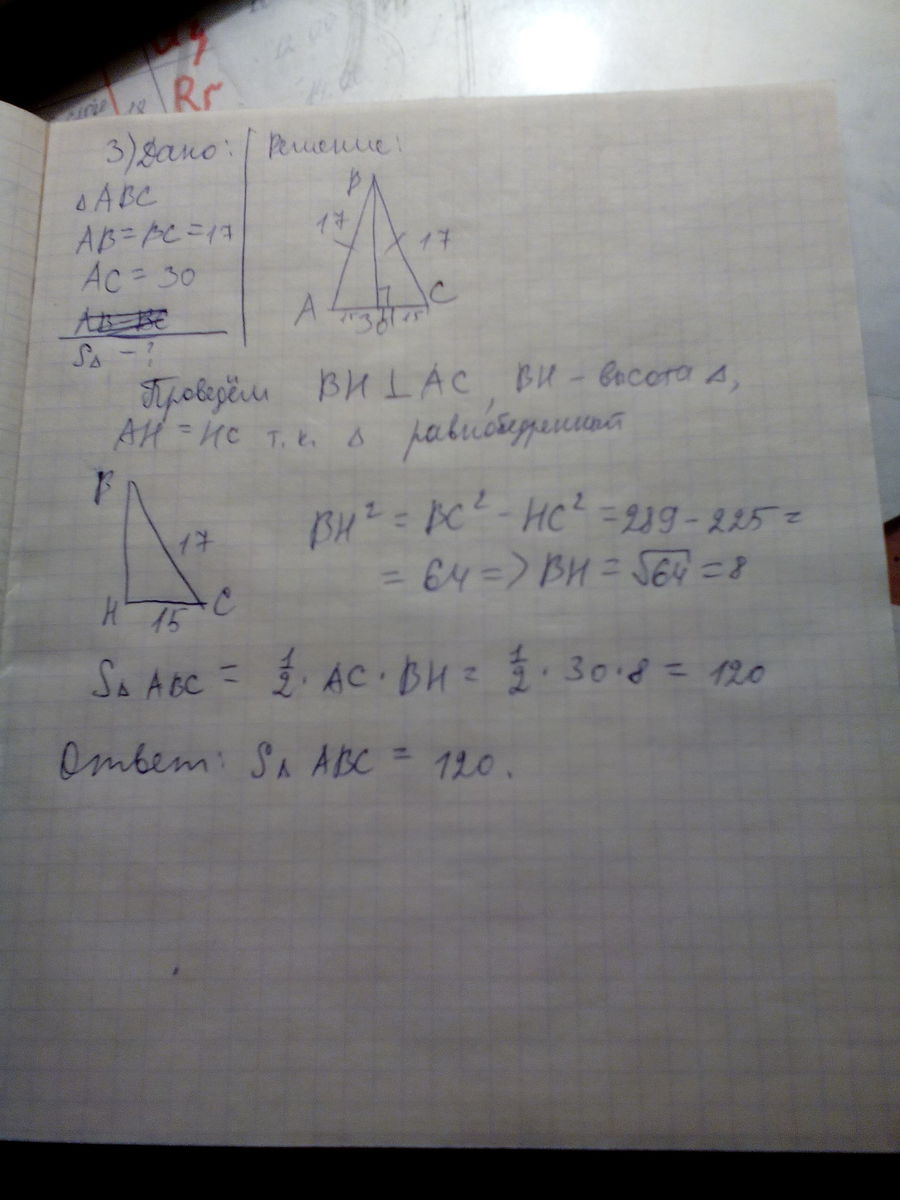 Rr
3) Дано:
△ ABC
AB = BC = 17
AC = 30
S△ - ?
Решение:
B
17
17
A
C
15
30
15
Проведём BH ⊥ AC, BH - высота △,
AH = HC т. к. △ равнобедренный
B
17
H
C
15
BH² = BC² - HC² = 289 - 225 =
= 64 => BH = √64 = 8
S△ ABC = 1/2 · AC · BH = 1/2 · 30 · 8 = 120
Ответ: S△ ABC = 120.